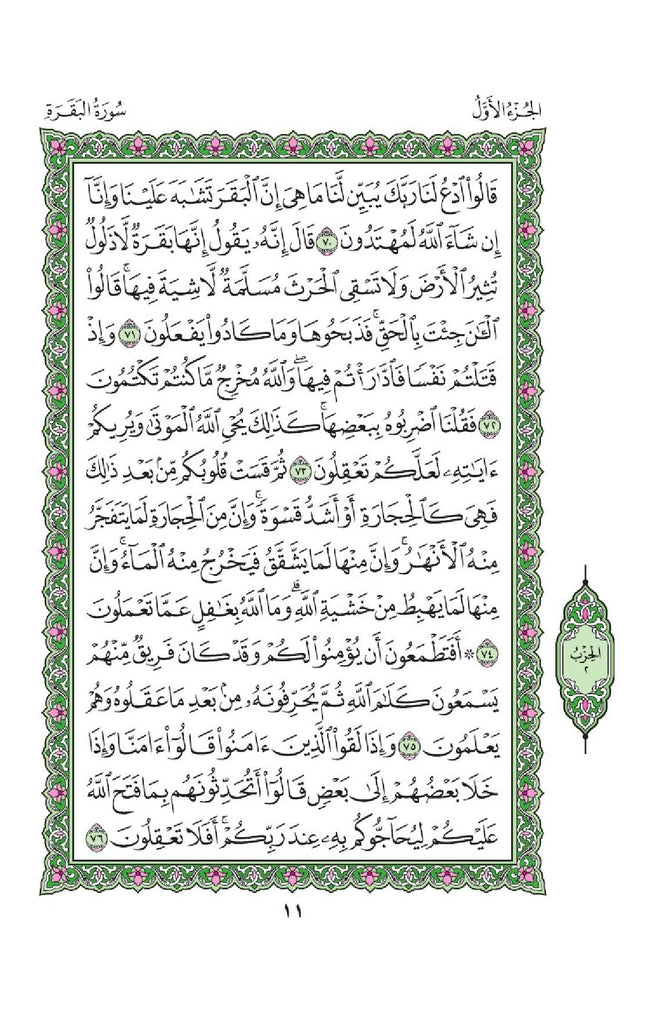 الجُزْءُ الأَوَّلُ
سُورَةُ البَقَرَةِ
قَالُوا۟ ٱدْعُ لَنَا رَبَّكَ يُبَيِّن لَّنَا مَا هِىَ إِنَّ ٱلْبَقَرَ تَشَـٰبَهَ عَلَيْنَا وَإِنَّآ
إِن شَآءَ ٱللَّهُ لَمُهْتَدُونَ ٧٠ قَالَ إِنَّهُۥ يَقُولُ إِنَّهَا بَقَرَةٌ لَّا ذَلُولٌ
تُثِيرُ ٱلْأَرْضَ وَلَا تَسْقِى ٱلْحَرْثَ مُسَلَّمَةٌ لَّا شِيَةَ فِيهَا ۚ قَالُوا۟
ٱلْـَٔـٰنَ جِئْتَ بِٱلْحَقِّ ۚ فَذَبَحُوهَا وَمَا كَادُوا۟ يَفْعَلُونَ ٧١ وَإِذْ
قَتَلْتُمْ نَفْسًا فَٱدَّٰرَْٰٔتُمْ فِيهَا ۖ وَٱللَّهُ مُخْرِجٌ مَّا كُنتُمْ تَكْتُمُونَ
٧٢ فَقُلْنَا ٱضْرِبُوهُ بِبَعْضِهَا ۚ كَذَٰلِكَ يُحْىِ ٱللَّهُ ٱلْمَوْتَىٰ وَيُرِيكُمْ
ءَايَـٰتِهِۦ لَعَلَّكُمْ تَعْقِلُونَ ٧٣ ثُمَّ قَسَتْ قُلُوبُكُم مِّنۢ بَعْدِ ذَٰلِكَ
فَهِىَ كَٱلْحِجَارَةِ أَوْ أَشَدُّ قَسْوَةً ۚ وَإِنَّ مِنَ ٱلْحِجَارَةِ لَمَا يَتَفَجَّرُ
مِنْهُ ٱلْأَنْهَـٰرُ ۚ وَإِنَّ مِنْهَا لَمَا يَشَّقَّقُ فَيَخْرُجُ مِنْهُ ٱلْمَآءُ ۚ وَإِنَّ
مِنْهَا لَمَا يَهْبِطُ مِنْ خَشْيَةِ ٱللَّهِ ۗ وَمَا ٱللَّهُ بِغَـٰفِلٍ عَمَّا تَعْمَلُونَ
٧٤ ۞ أَفَتَطْمَعُونَ أَن يُؤْمِنُوا۟ لَكُمْ وَقَدْ كَانَ فَرِيقٌ مِّنْهُمْ
يَسْمَعُونَ كَلَـٰمَ ٱللَّهِ ثُمَّ يُحَرِّفُونَهُۥ مِنۢ بَعْدِ مَا عَقَلُوهُ وَهُمْ
يَعْلَمُونَ ٧٥ وَإِذَا لَقُوا۟ ٱلَّذِينَ ءَامَنُوا۟ قَالُوٓا۟ ءَامَنَّا وَإِذَا
خَلَا بَعْضُهُمْ إِلَىٰ بَعْضٍ قَالُوٓا۟ أَتُحَدِّثُونَهُم بِمَا فَتَحَ ٱللَّهُ
عَلَيْكُمْ لِيُحَآجُّوكُم بِهِۦ عِندَ رَبِّكُمْ ۚ أَفَلَا تَعْقِلُونَ ٧٦
الحِزْبُ
٢
١١